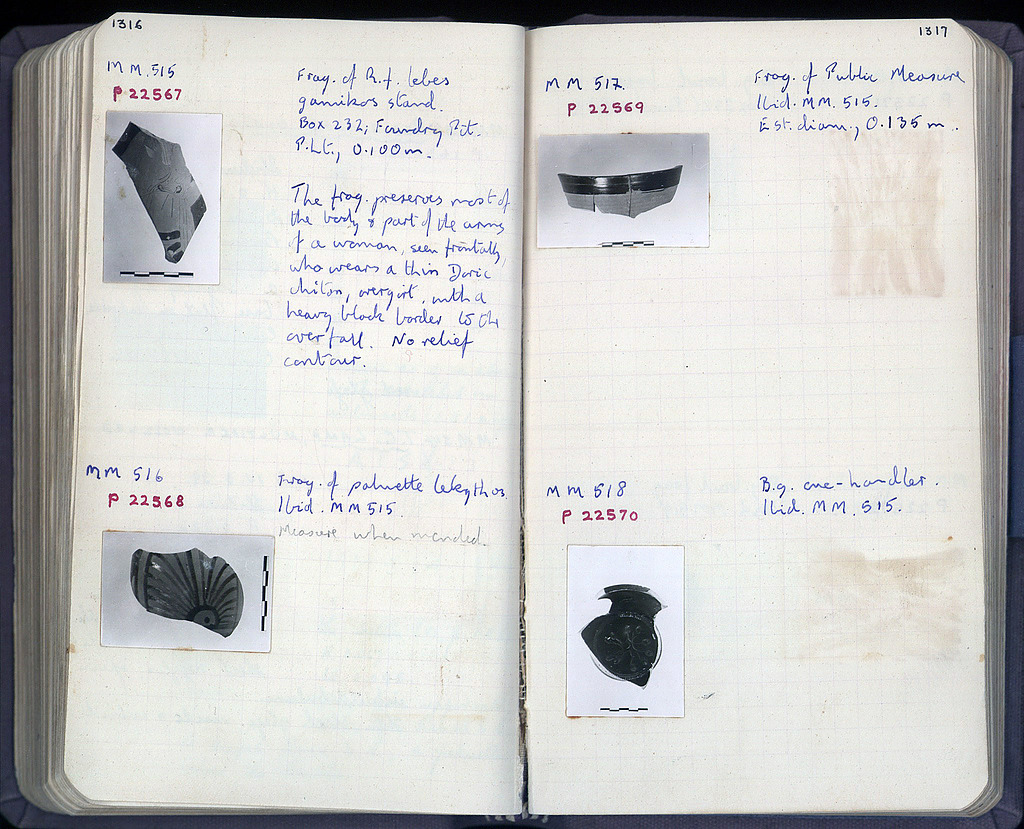 1316
MM.515
P 22567
Frag. of R.f. lebes
gamikos stand.
Box 232; Foundry Pit.
P.Lt., 0.100m.
The frag. preserves most of
the body & part of the arms
of a woman, seen frontally,
who wears a thin Doric
chiton, overgirt, with a
heavy black border to the
overfall. No relief
contour.
MM 516
P 22568
Frag. of palmette lekythos.
Ibid. MM 515.
Measure when mended.
1317
MM 517
P 22569
Frag. of Public Measure
Ibid. MM. 515.
Est. diam., 0.135 m.
MM 518
P 22570
B.g. one-handler.
Ibid. MM. 515.